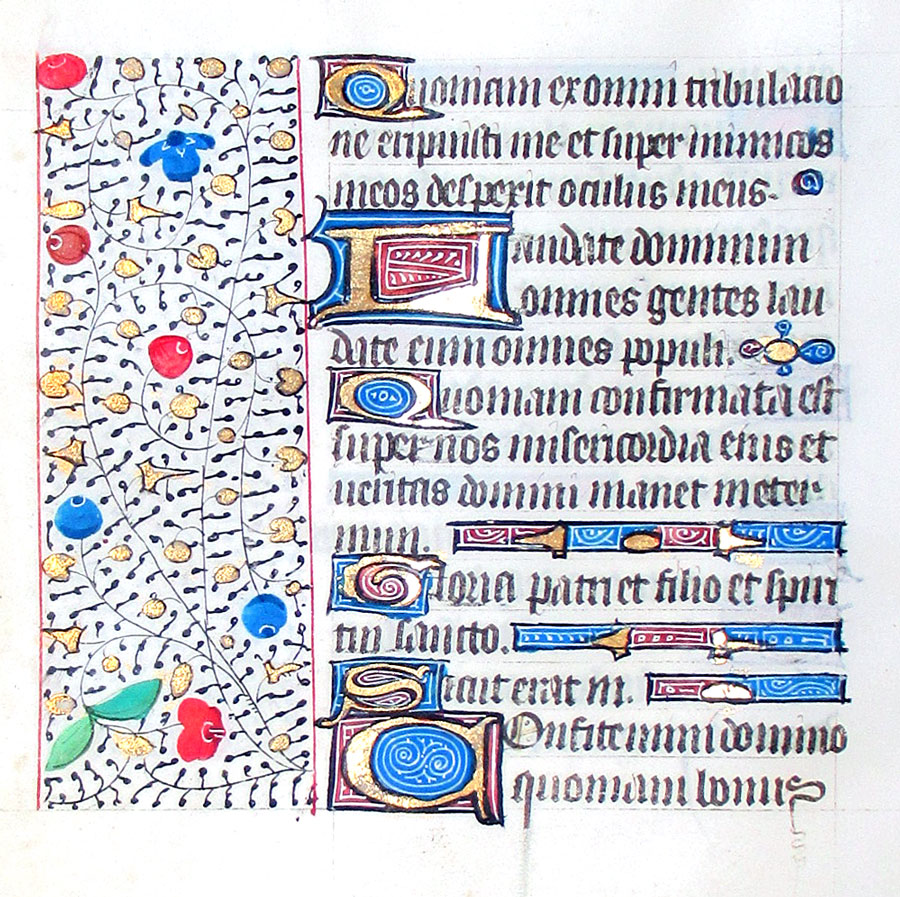 Quoniam ex omni tribulacio
ne eripuisti me et super inimicos
meos despexit oculus meus.
Laudate dominum
omnes gentes lau
date eum omnes populi.
Quoniam confirmata est
super nos misericordia eius et
veritas domini manet in eter
num.
Gloria patri et filio et spiri
tui sancto.
Sicut erat in.
Confitemini domino
quoniam bonus